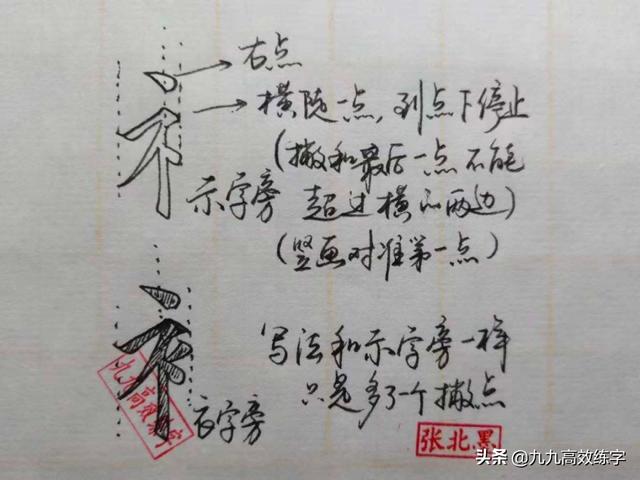 右点
横陡一点，到点下停止
（撇和最后一点不能
示字旁 超过横的两边）
（竖画对准第一点）
写法和示字旁一样
只是多了一个撇点
衣字旁
九九高效练字
张北黑
头条 @九九高效练字